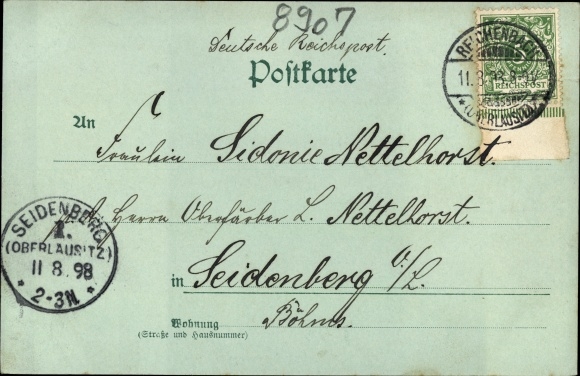 8907
Deutsche Reichspost.
Postkarte
REICHENBACH
11.8.98.8-9V
(OBERLAUSITZ)
REICHSPOST
An
Fräulein Sidonie Nettelhorst.
Herrn Oberfärber L. Nettelhorst.
in Seidenberg O/L.
Böhms.
Wohnung
(Straße und Hausnummer)
SEIDENBERG
1.
(OBERLAUSITZ)
11 8.98
* 2-3N. *